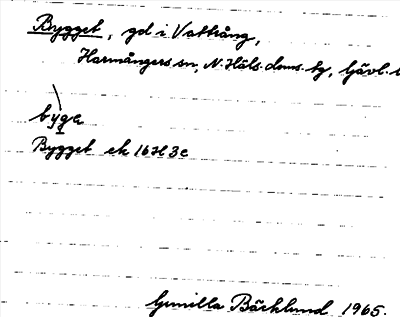 Bygget, gd i Vattrång,
Harmångers sn, N. Häls. doms. hg, Gävl. l
byge
Bygget ek 16H3e
Gunilla Bäcklund 1965.